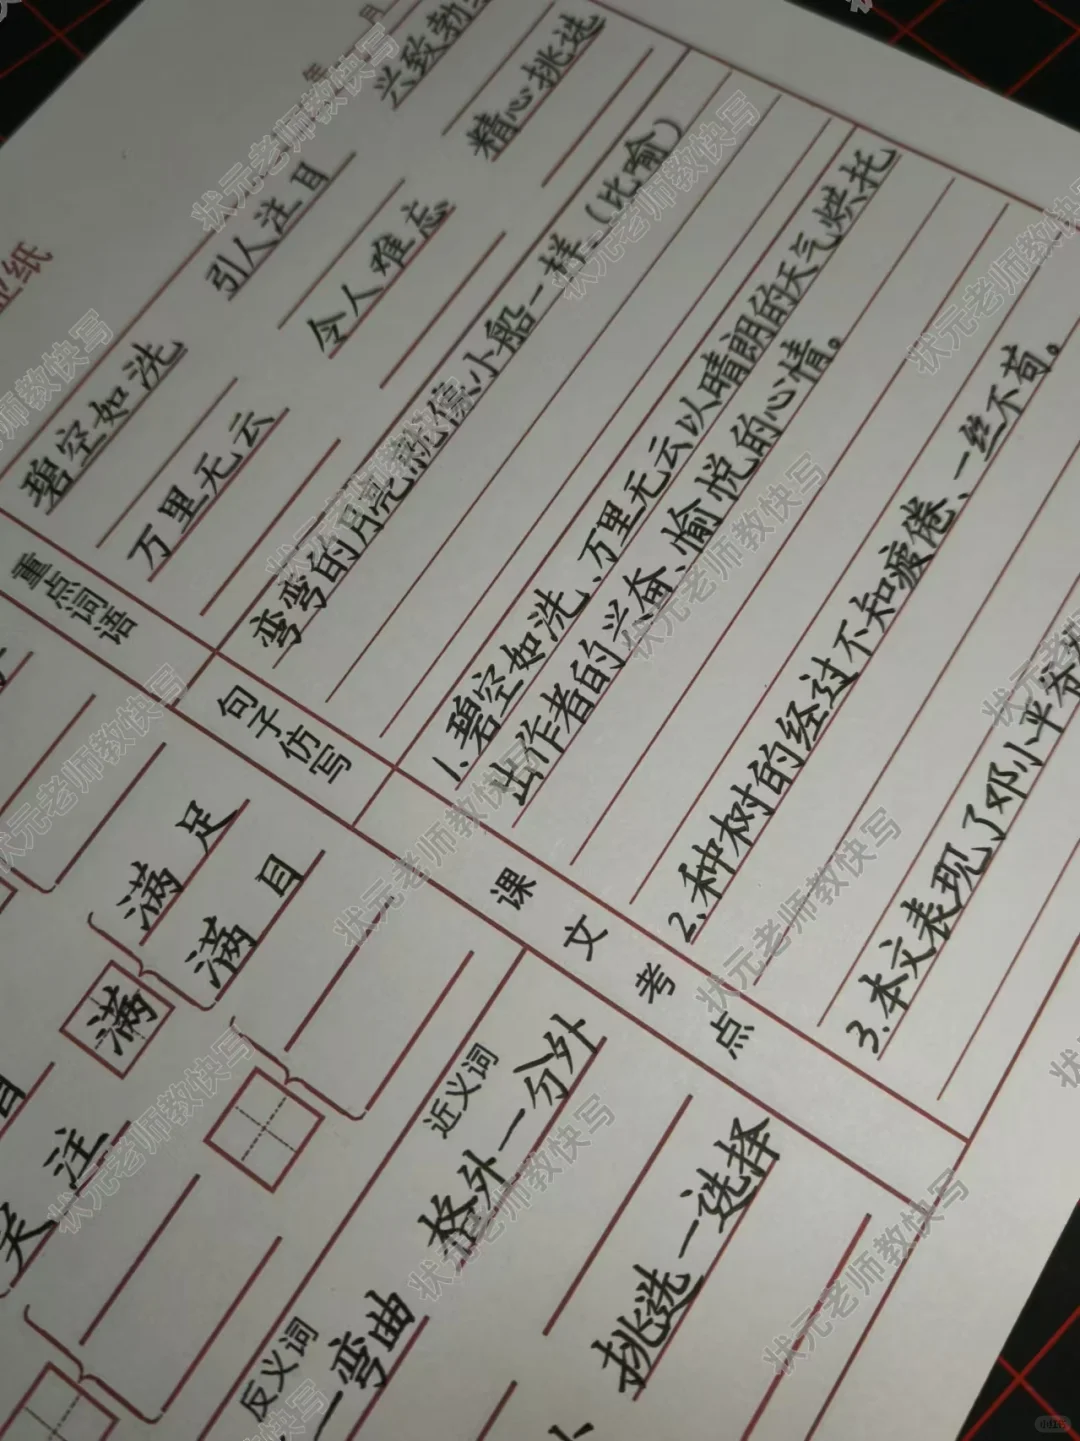 业纸
年 月
重点词语
碧空如洗 引人注目 兴致勃
万里无云 令人难忘 精心挑选
句子仿写
弯弯的月亮就像小船一样。(比喻)
课文考点
1、碧空如洗、万里无云以晴朗的天气烘托
出作者的兴奋、愉悦的心情。
2、种树的经过不知疲倦、一丝不苟。
3、本文表现了邓小平爷爷
满 满足
满目
目
关注
近义词
格外一分外
挑选一选择
反义词
一弯曲
状元老师教快写